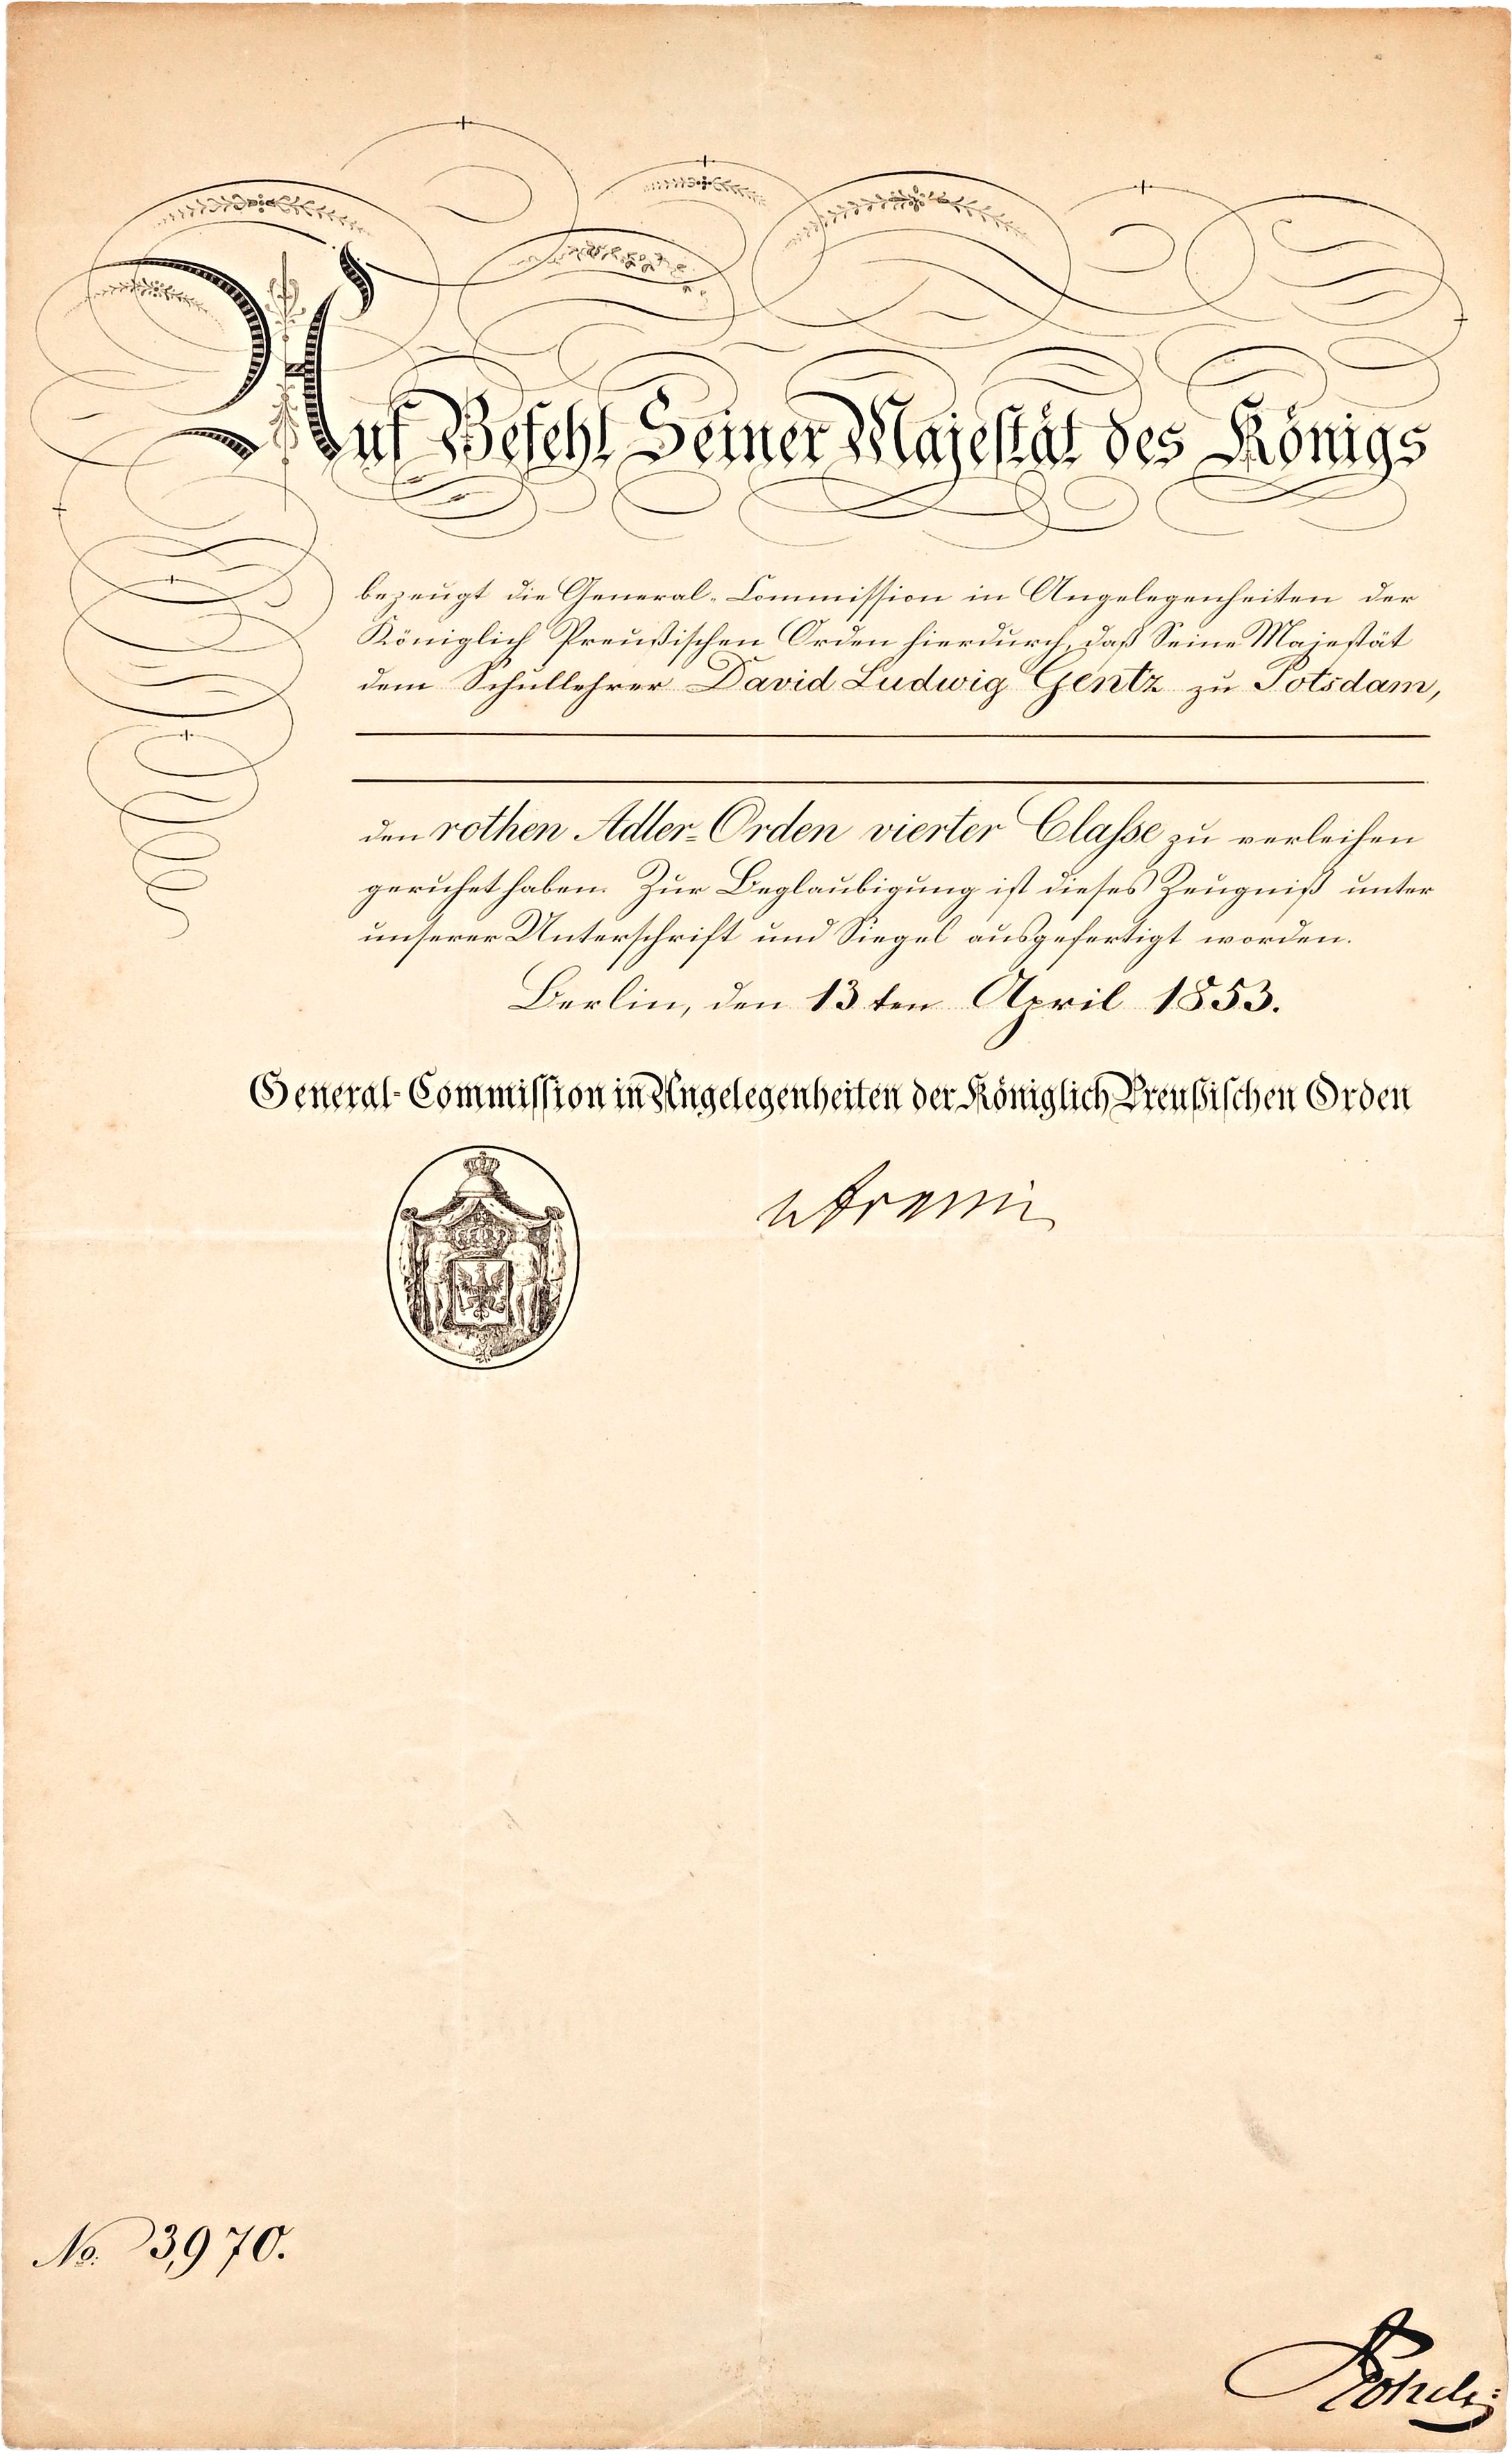 Auf Befehl Seiner Majestät des Königs
bezeugt die General-Commission in Angelegenheiten der
Königlich Preußischen Orden hierdurch, daß Seine Majestät
dem Schullehrer David Ludwig Gentz zu Potsdam,
den rothen Adler-Orden vierter Classe zu verleihen
geruhet haben. Zur Beglaubigung ist dieses Zeugniß unter
unserer Unterschrift und Siegel ausgefertigt worden.
Berlin, den 13ten April 1853.
General-Commission in Angelegenheiten der Königlich Preußischen Orden
No. 3,970.